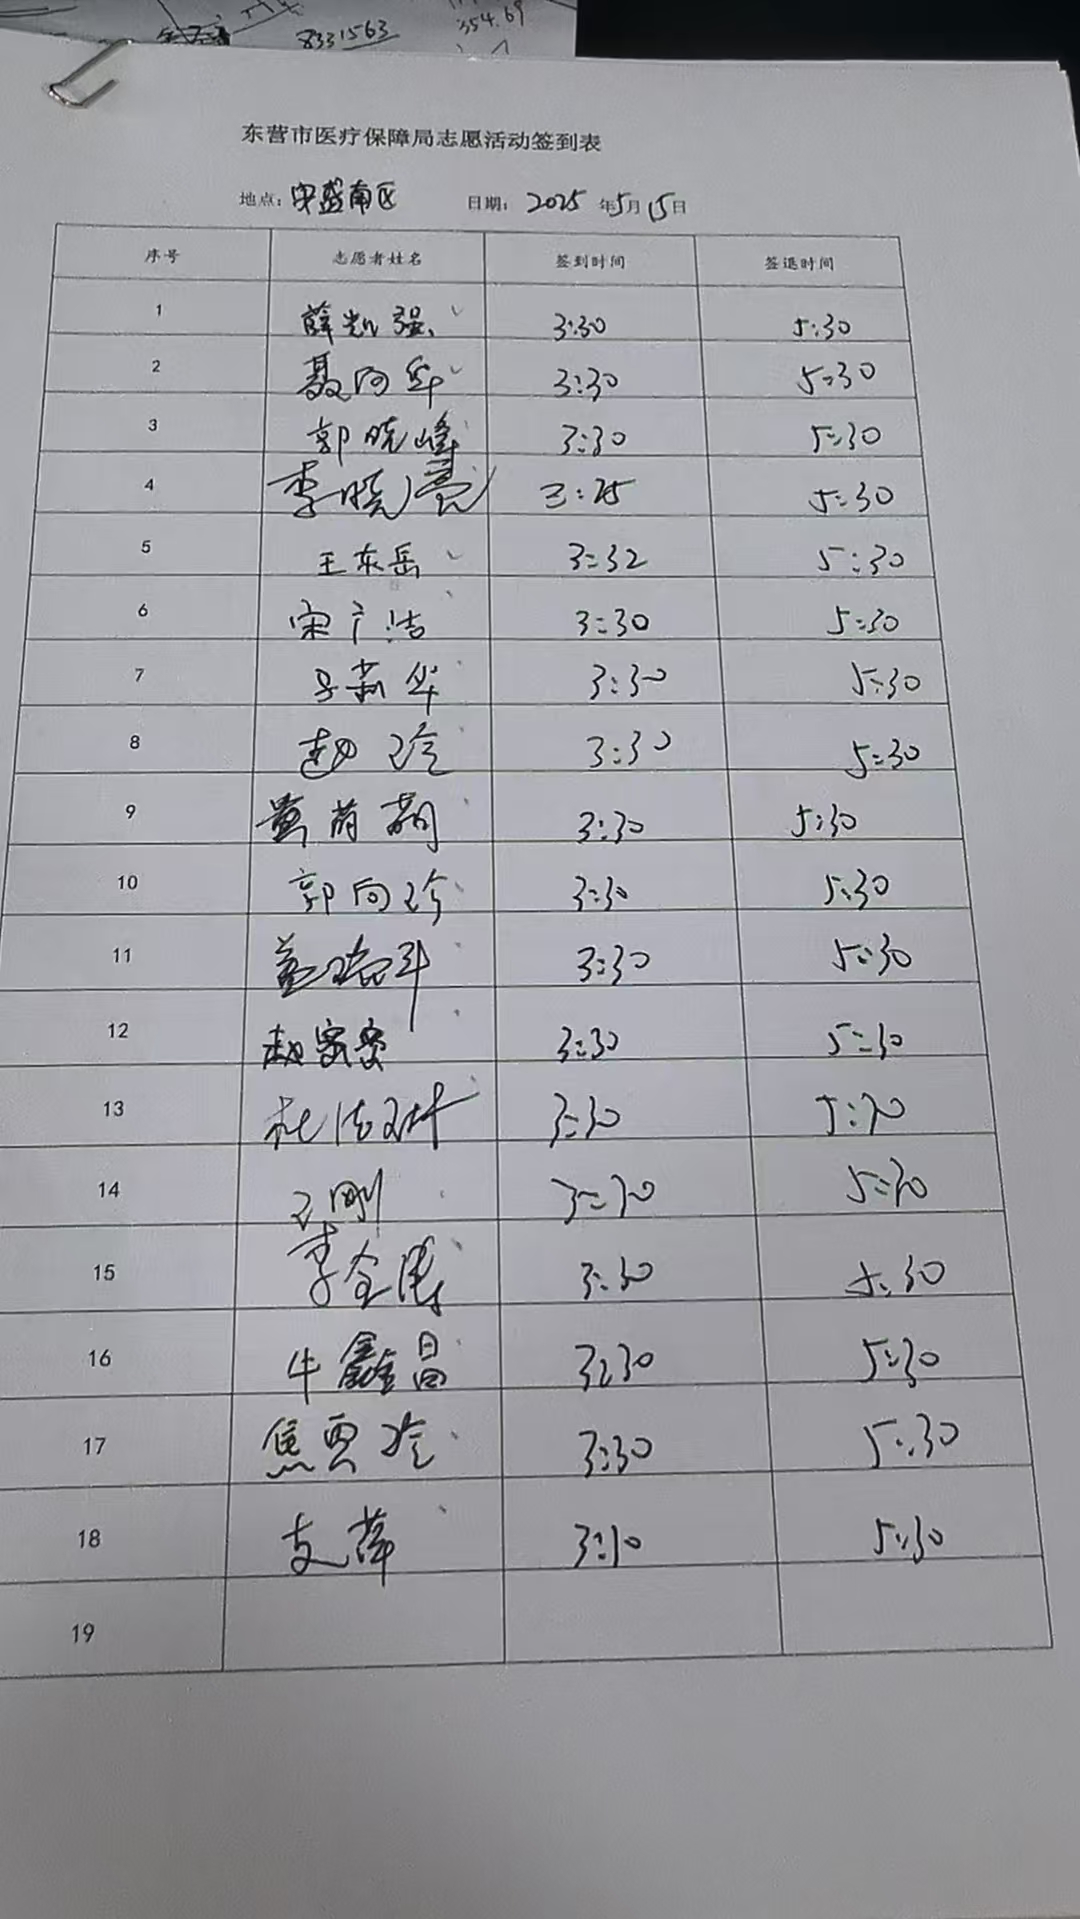 8331563
354.69
东营市医疗保障局志愿活动签到表
地点: 中盛南区 日期: 2025年5月15日
序号 志愿者姓名 签到时间 签退时间
1 薛凯强 3:30 5:30
2 聂向华 3:30 5:30
3 郭晓峰 3:30 5:30
4 李晓亮 3:25 5:30
5 王东岳 3:32 5:30
6 宋广洁 3:30 5:30
7 莉华 3:30 5:30
8 赵玲 3:30 5:30
9 黄 3:30 5:30
10 郭向珍 3:30 5:30
11 盖瑞 3:30 5:30
12 赵密密 3:30 5:30
13 杜 3:30 5:30
14 王刚 3:30 5:30
15 李全 3:30 5:30
16 牛鑫昌 3:30 5:30
17 焦贾玲 3:30 5:30
18 支萍 3:30 5:30
19